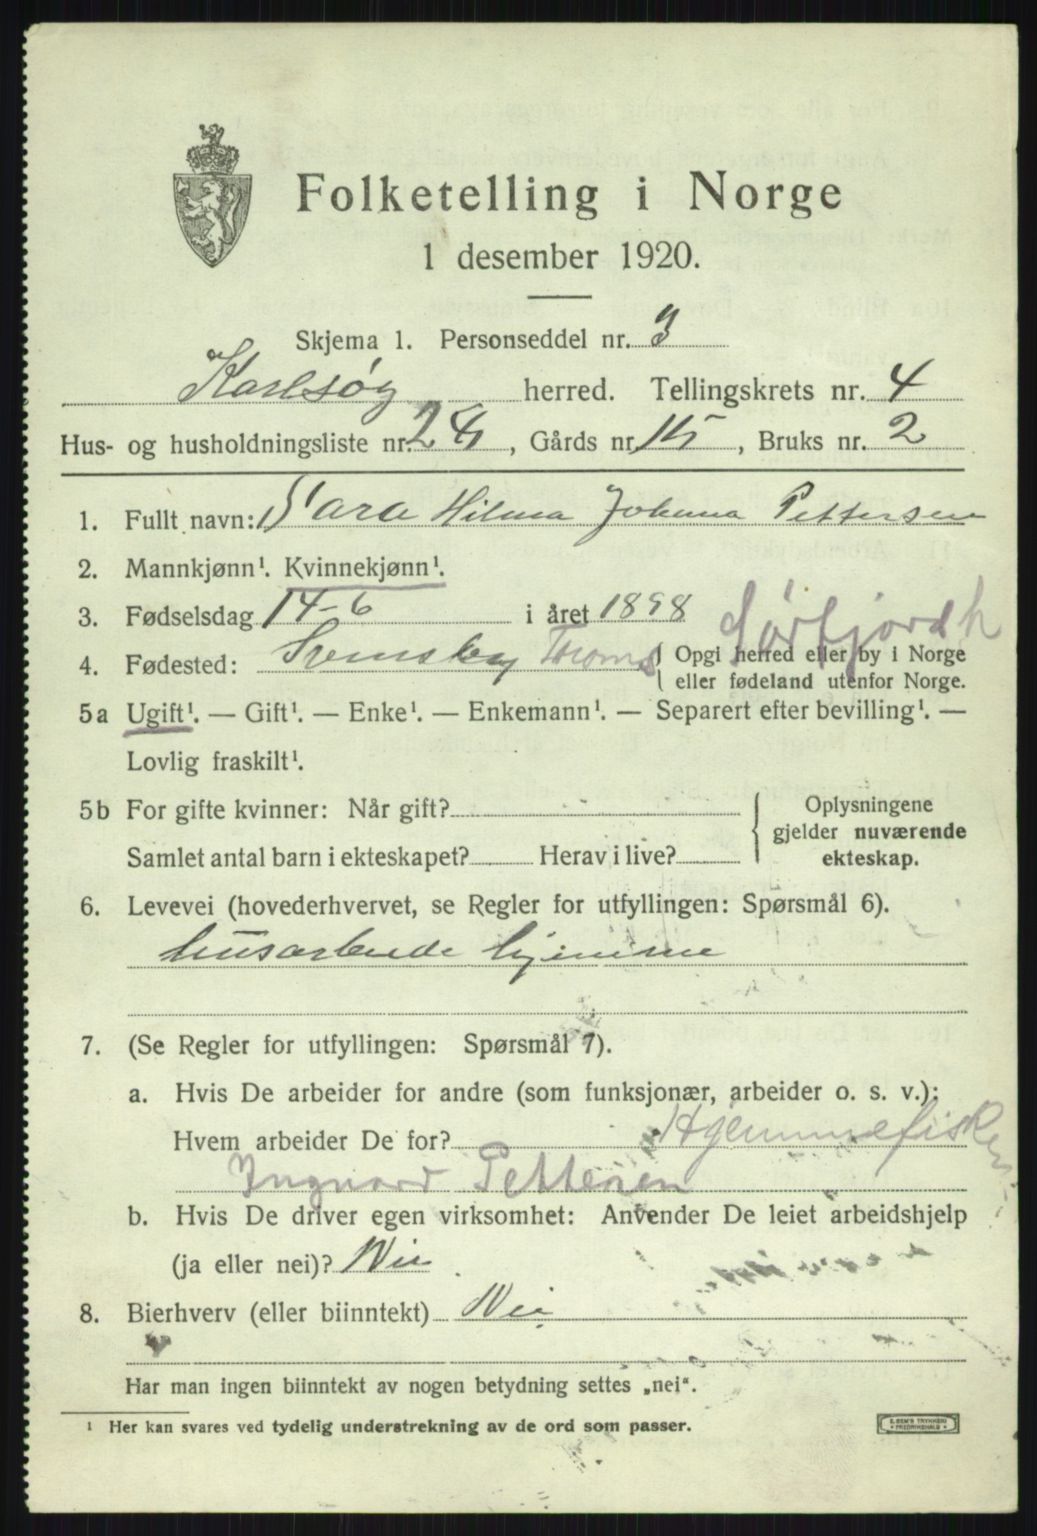 Folketelling i Norge
1 desember 1920.
Skjema 1. Personseddel nr. 3
Karlsøy herred. Tellingskrets nr. 4
Hus- og husholdningsliste nr. 28, Gårds nr. 15, Bruks nr. 2
1. Fullt navn: Sara Hilma Johanna Pettersen
2. Mannkjønn¹. Kvinnekjønn¹.
3. Fødselsdag 14-6 i året 1898 Sørfjord h
4. Fødested: Svensby Troms { Opgi herred eller by i Norge
eller fødeland utenfor Norge.
5a Ugift¹. — Gift¹. — Enke¹. — Enkemann¹. — Separert efter bevilling¹. —
Lovlig fraskilt¹.
5b For gifte kvinner: Når gift? { Oplysningene
gjelder nuværende
Samlet antal barn i ekteskapet? Herav i live? ekteskap.
6. Levevei (hovederhvervet, se Regler for utfyllingen: Spørsmål 6).
husarbeide hjemme
7. (Se Regler for utfyllingen: Spørsmål 7).
a. Hvis De arbeider for andre (som funksjonær, arbeider o. s. v.):
Hvem arbeider De for? Hjemmefisker
Ingvard Pettersen
b. Hvis De driver egen virksomhet: Anvender De leiet arbeidshjelp
(ja eller nei)? Nei
8. Bierhverv (eller biinntekt) Nei
Har man ingen biinntekt av nogen betydning settes „nei“.
¹ Her kan svares ved tydelig understrekning av de ord som passer.
E. SEM'S TRYKKERI
FREDRIKSHALD